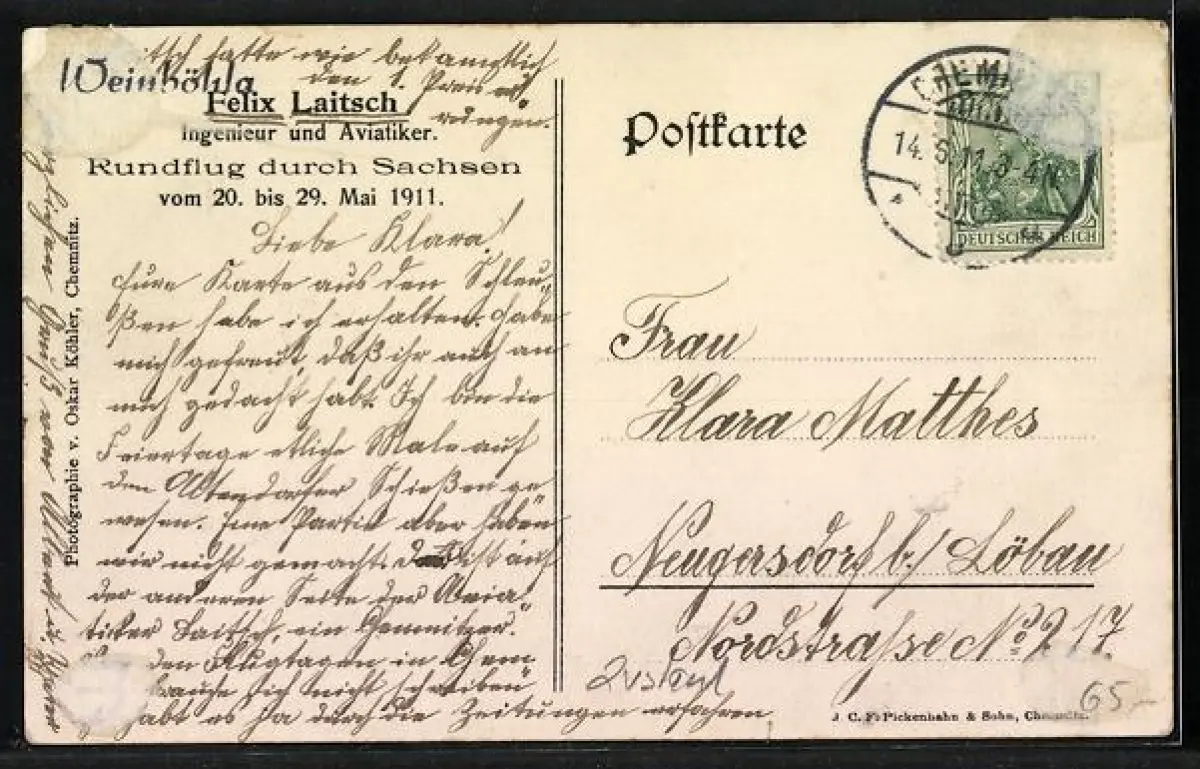 Weinböhla
Felix Laitsch
Ingenieur und Aviatiker.
Rundflug durch Sachsen
vom 20. bis 29. Mai 1911.
Photographie v. Oskar Köhler, Chemnitz.
Liebe Klara!
Eure Karte aus den Schleu„
ßen habe ich erhalten. Habe
mich gefreut, daß ihr auch an
mich gedacht habt. Ich bin die
Feiertage etliche Male auf
den Altendorfer Schießen ge„
wesen. Eine Partie aber haben
wir nicht gemacht. ist auf
der anderen Seite der Avia„
tiker Laitsch, ein Chemnitzer.
den Flugtagen in Chem
brauche ich nicht schreiben
habt es ja durch die Zeitungen erfahren
tsch hatte wie bekanntlich
den 1. Preis er„
rungen.
Gruß von
Postkarte
CHEM
14. 6. 11. 3-4 N
DEUTSCHES REICH
Frau
Klara Matthes
Neugersdorf b/ Löbau
Nordstraße No 217.
65,-
J. C. F. Pickenhahn & Sohn, Chemnitz.